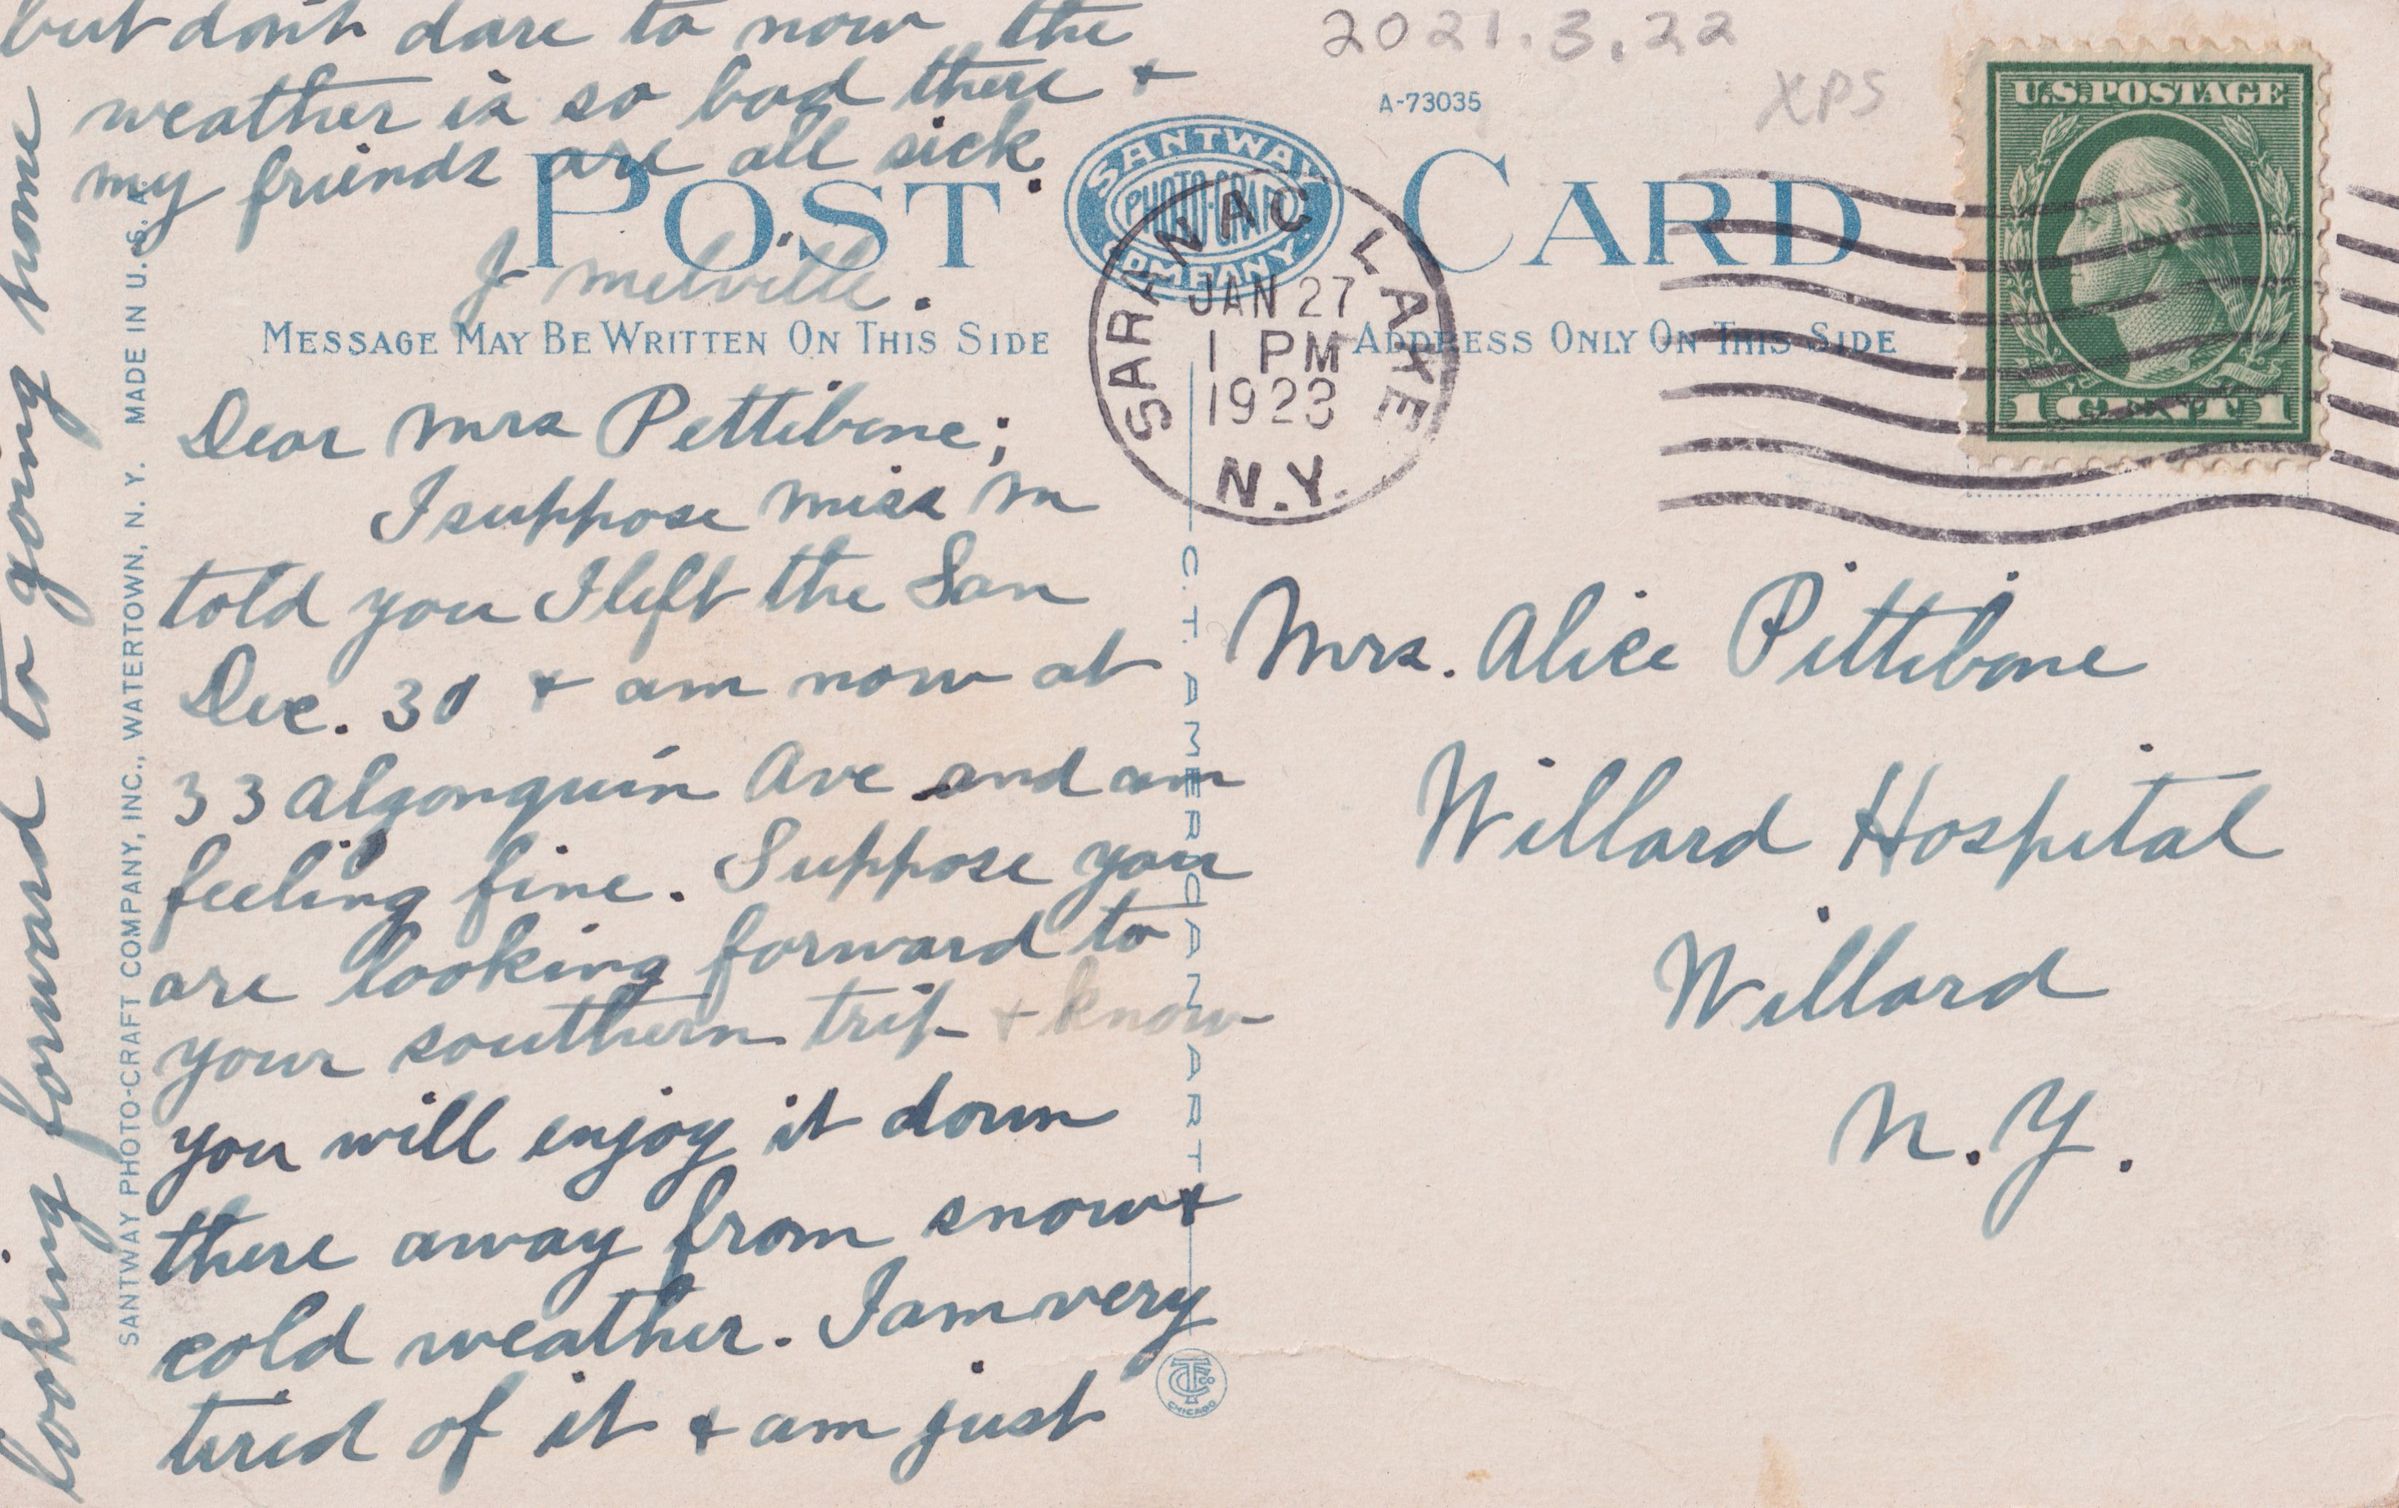 2021.3.22
XPS
A-73035
U.S. POSTAGE
1 CENT 1
POST CARD
SANTWAY PHOTO-CRAFT COMPANY
SARANAC LAKE
JAN 27
1 PM
1923
N.Y.
MESSAGE MAY BE WRITTEN ON THIS SIDE
ADDRESS ONLY ON THIS SIDE
Dear Mrs Pettibone;
I suppose Miss M
told you I left the San
Dec. 30 + am now at
33 Algonquin Ave and am
feeling fine. Suppose you
are looking forward to
your southern trip + know
you will enjoy it down
there away from snow +
cold weather. I am very
tired of it + am just
looking forward to going home
but don't dare to now the
weather is so bad there +
my friends are all sick.
J Melville.
Mrs. Alice Pettibone
Willard Hospital
Willard
N.Y.
SANTWAY PHOTO-CRAFT COMPANY, INC., WATERTOWN, N. Y. MADE IN U. S. A.
C. T. AMERICAN ART
CT CO
CHICAGO